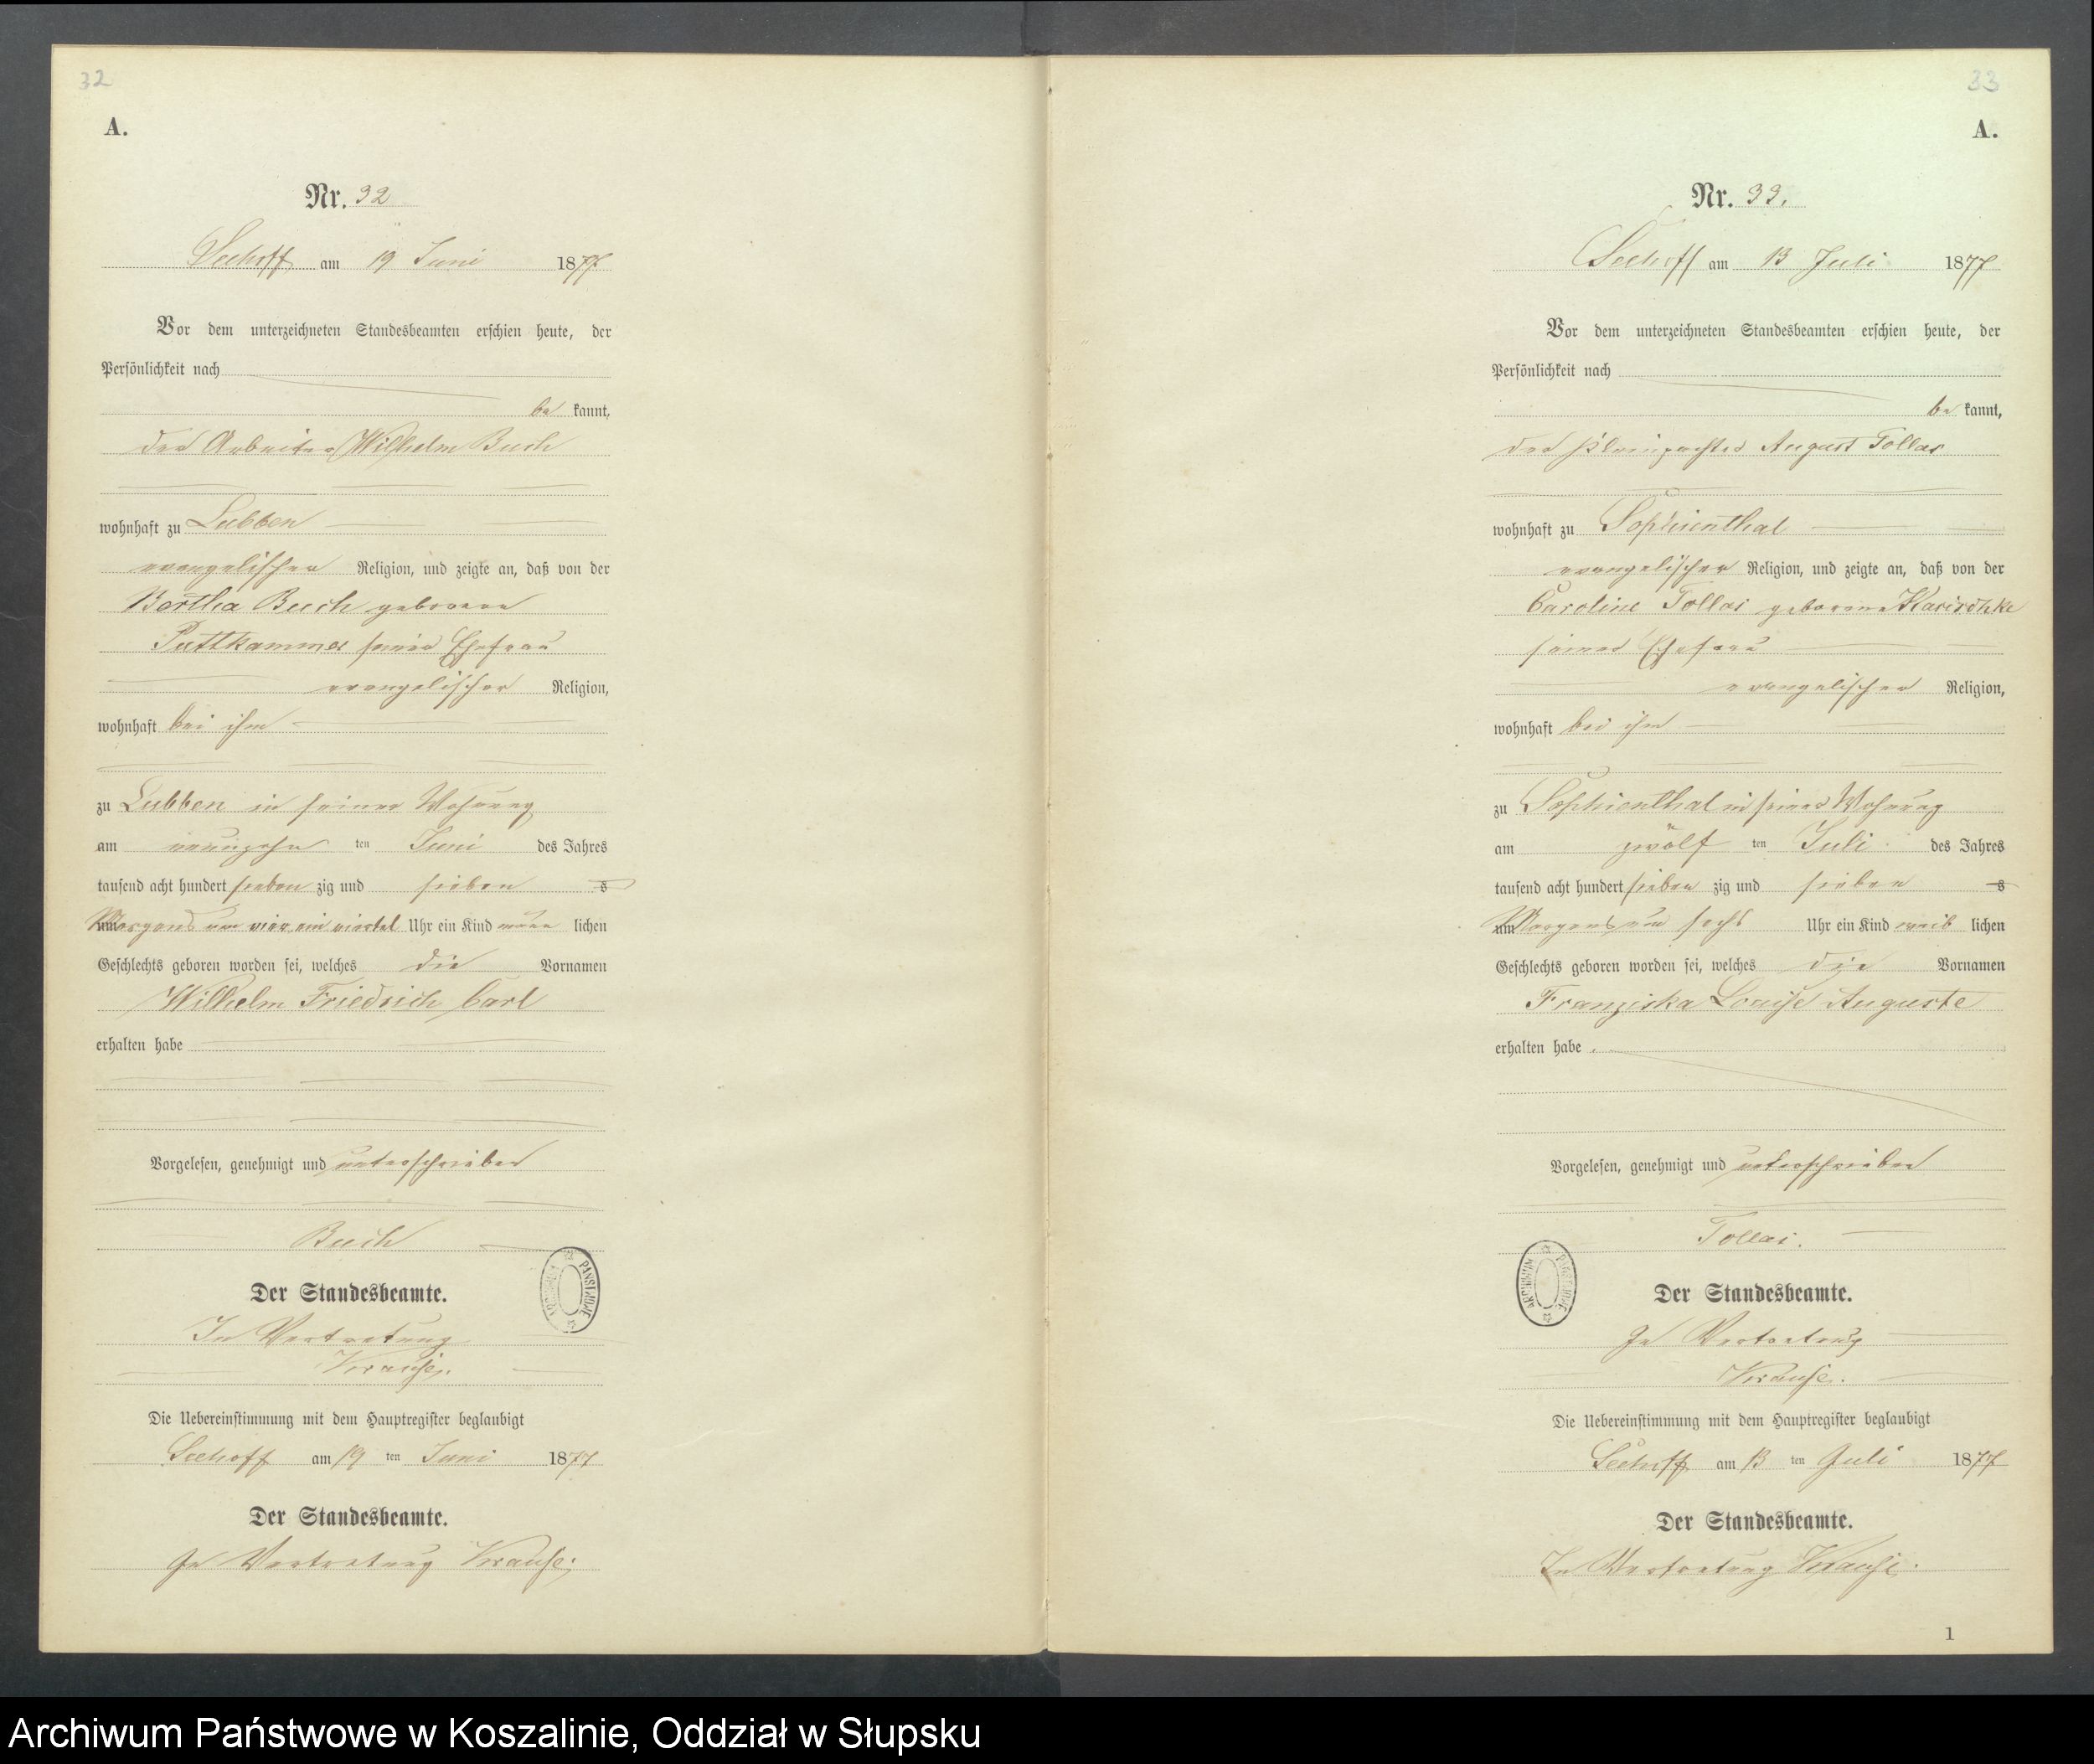 32
A.
Nr. 32
Seehoff am 19 Juni 1877
Vor dem unterzeichneten Standesbeamten erschien heute, der
Persönlichkeit nach
be kannt,
der Arbeiter Wilhelm Buch
wohnhaft zu Lubben
evangelischer Religion, und zeigte an, daß von der
Bertha Buch geborene
Puttkammer seiner Ehefrau
evangelischer Religion,
wohnhaft bei ihm
zu Lubben in seiner Wohnung
am neunzehn ten Juni des Jahres
tausend acht hundert sieben zig und sieben s
Morgens um vier ein viertel Uhr ein Kind männ lichen
Geschlechts geboren worden sei, welches die Vornamen
Wilhelm Friedrich Carl
erhalten habe
Vorgelesen, genehmigt und unterschrieben
Buch
ARCHIWUM PAŃSTWOWE
Der Standesbeamte.
In Vertretung
Krause.
Die Uebereinstimmung mit dem Hauptregister beglaubigt
Seehoff am 19 ten Juni 1877
Der Standesbeamte.
In Vertretung Krause.
33
A.
Nr. 33.
Seehoff am 13 Juli 1877
Vor dem unterzeichneten Standesbeamten erschien heute, der
Persönlichkeit nach
be kannt,
der Kleinpächter August Tollas
wohnhaft zu Sophienthal
evangelischer Religion, und zeigte an, daß von der
Caroline Tollas geborene
seiner Ehefrau
evangelischer Religion,
wohnhaft bei ihm
zu Sophienthal in seiner Wohnung
am zwölf ten Juli des Jahres
tausend acht hundert sieben zig und sieben s
um Morgens um sechs Uhr ein Kind weib lichen
Geschlechts geboren worden sei, welches die Vornamen
Franziska Louise Auguste
erhalten habe.
Vorgelesen, genehmigt und unterschrieben
Tollas.
ARCHIWUM PAŃSTWOWE
Der Standesbeamte.
In Vertretung
Krause.
Die Uebereinstimmung mit dem Hauptregister beglaubigt
Seehoff am 13 ten Juli 1877
Der Standesbeamte.
In Vertretung Krause.
1
Archiwum Państwowe w Koszalinie, Oddział w Słupsku